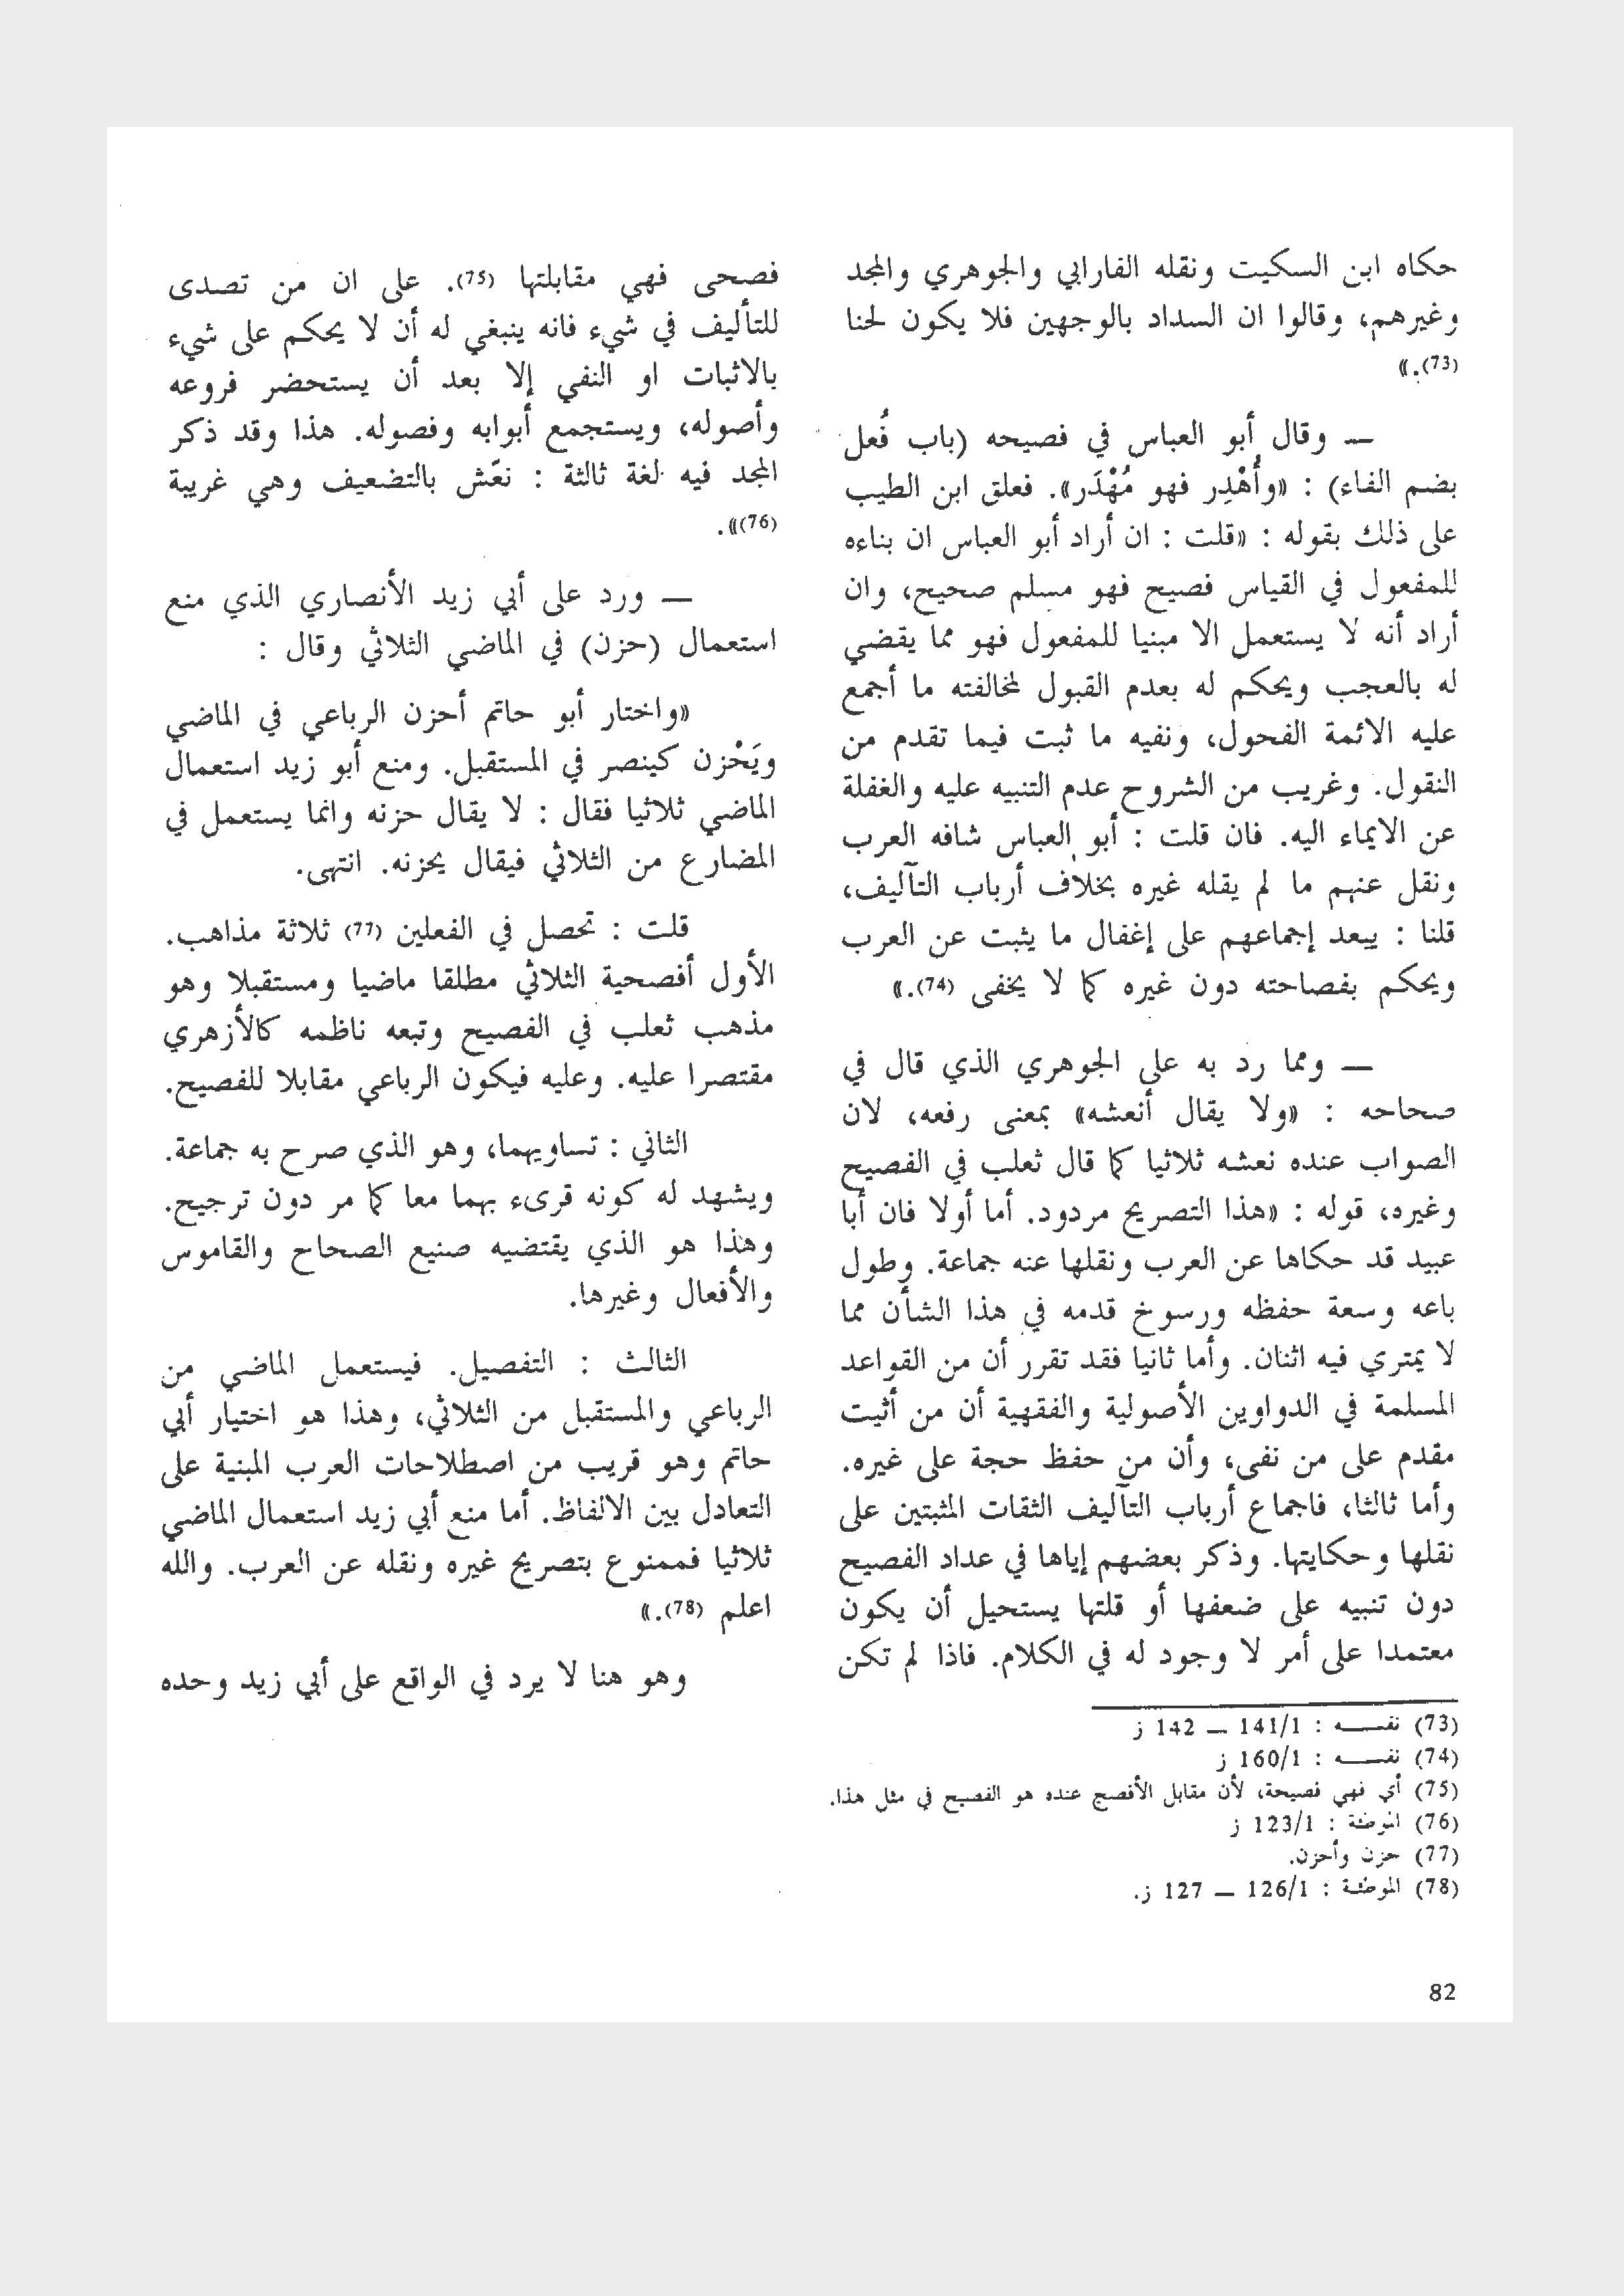 حكاه ابن السكيت ونقله الفارابي والجوهري والمجد
وغيرهم، وقالوا ان السداد بالوجهين فلا يكون لحنا
(73).»
— وقال أبو العباس في فصيحه (باب فُعل
بضم الفاء) : «وأُهْدِر فهو مُهْدَر». فعلق ابن الطيب
على ذلك بقوله : «قلت : ان أراد أبو العباس ان بناءه
للمفعول في القياس فصيح فهو مسلم صحيح، وان
أراد أنه لا يستعمل الا مبنيا للمفعول فهو مما يقضي
له بالعجب ويحكم له بعدم القبول لمخالفته ما أجمع
عليه الائمة الفحول، ونفيه ما ثبت فيما تقدم من
النقول. وغريب من الشروح عدم التنبيه عليه والغفلة
عن الايماء اليه. فان قلت : أبو العباس شافه العرب
ونقل عنهم ما لم يقله غيره بخلاف أرباب التآليف،
قلنا : يبعد إجماعهم على إغفال ما يثبت عن العرب
ويحكم بفصاحته دون غيره كما لا يخفى (74).»
— ومما رد به على الجوهري الذي قال في
صحاحه : «ولا يقال أنعشه» بمعنى رفعه، لان
الصواب عنده نعشه ثلاثيا كما قال ثعلب في الفصيح
وغيره، قوله : «هذا التصريح مردود. أما أولا فان أبا
عبيد قد حكاها عن العرب ونقلها عنه جماعة. وطول
باعه وسعة حفظه ورسوخ قدمه في هذا الشأن مما
لا يمتري فيه اثنان. وأما ثانيا فقد تقرر أن من القواعد
المسلمة في الدواوين الأصولية والفقهية أن من أثبت
مقدم على من نفى، وأن من حفظ حجة على غيره.
وأما ثالثا، فاجماع أرباب التآليف الثقات المثبتين على
نقلها وحكايتها. وذكر بعضهم إياها في عداد الفصيح
دون تنبيه على ضعفها أو قلتها يستحيل أن يكون
معتمدا على أمر لا وجود له في الكلام. فاذا لم تكن
فصحى فهي مقابلتها (75). على ان من تصدى
للتأليف في شيء فانه ينبغي له أن لا يحكم على شيء
بالاثبات او النفي إلا بعد أن يستحضر فروعه
وأصوله، ويستجمع أبوابه وفصوله. هذا وقد ذكر
المجد فيه لغة ثالثة : نعّش بالتضعيف وهي غريبة
(76)».
— ورد على أبي زيد الأنصاري الذي منع
استعمال (حزن) في الماضي الثلاثي وقال :
«واختار أبو حاتم أحزن الرباعي في الماضي
ويَحْزن كينصر في المستقبل. ومنع أبو زيد استعمال
الماضي ثلاثيا فقال : لا يقال حزنه وانما يستعمل في
المضارع من الثلاثي فيقال يحزنه. انتهى.
قلت : تحصل في الفعلين (77) ثلاثة مذاهب.
الأول أفصحية الثلاثي مطلقا ماضيا ومستقبلا وهو
مذهب ثعلب في الفصيح وتبعه ناظمه كالأزهري
مقتصرا عليه. وعليه فيكون الرباعي مقابلا للفصيح.
الثاني : تساويهما، وهو الذي صرح به جماعة.
ويشهد له كونه قرىء بهما معا كما مر دون ترجيح.
وهذا هو الذي يقتضيه صنيع الصحاح والقاموس
والأفعال وغيرها.
الثالث : التفصيل. فيستعمل الماضي من
الرباعي والمستقبل من الثلاثي، وهذا هو اختيار أبي
حاتم وهو قريب من اصطلاحات العرب المبنية على
التعادل بين الالفاظ. أما منع أبي زيد استعمال الماضي
ثلاثيا فممنوع بتصريح غيره ونقله عن العرب. والله
اعلم (78).»
وهو هنا لا يرد في الواقع على أبي زيد وحده
(73) نفسه : 141/1 — 142 ز
(74) نفسه : 160/1 ز
(75) أي فهي فصيحة، لأن مقابل الأفصح عنده هو الفصيح في مثل هذا.
(76) الموطئة : 123/1 ز
(77) حزن وأحزن.
(78) الموطئة : 126/1 — 127 ز.
82